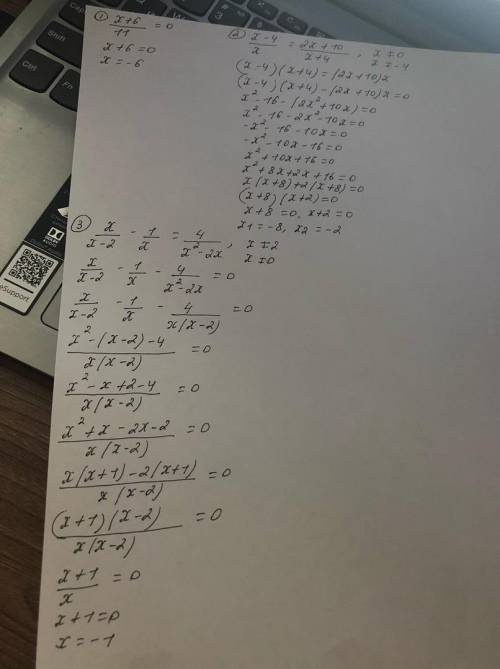 ① x+6/11 = 0
x+6=0
x=-6
② x-4/x = 2x+10/x+4, x≠0
x≠-4
(x-4)(x+4)=(2x+10)x
(x-4)(x+4)-(2x+10)x=0
x²-16-(2x²+10x)=0
x²-16-2x²-10x=0
-x²-16-10x=0
-x²-10x-16=0
x²+10x+16=0
x²+8x+2x+16=0
x(x+8)+2(x+8)=0
(x+8)(x+2)=0
x+8=0, x+2=0
x₁=-8, x₂=-2
③ x/x-2 - 1/x = 4/x²-2x, x≠2
x≠0
x/x-2 - 1/x - 4/x²-2x = 0
x/x-2 - 1/x - 4/x(x-2) = 0
x²-(x-2)-4/x(x-2) = 0
x²-x+2-4/x(x-2) = 0
x²+x-2x-2/x(x-2) = 0
x(x+1)-2(x+1)/x(x-2) = 0
(x+1)(x-2)/x(x-2) = 0
x+1/x = 0
x+1=0
x=-1
Shift
Ctrl
Fn
DOLBY
eSupport